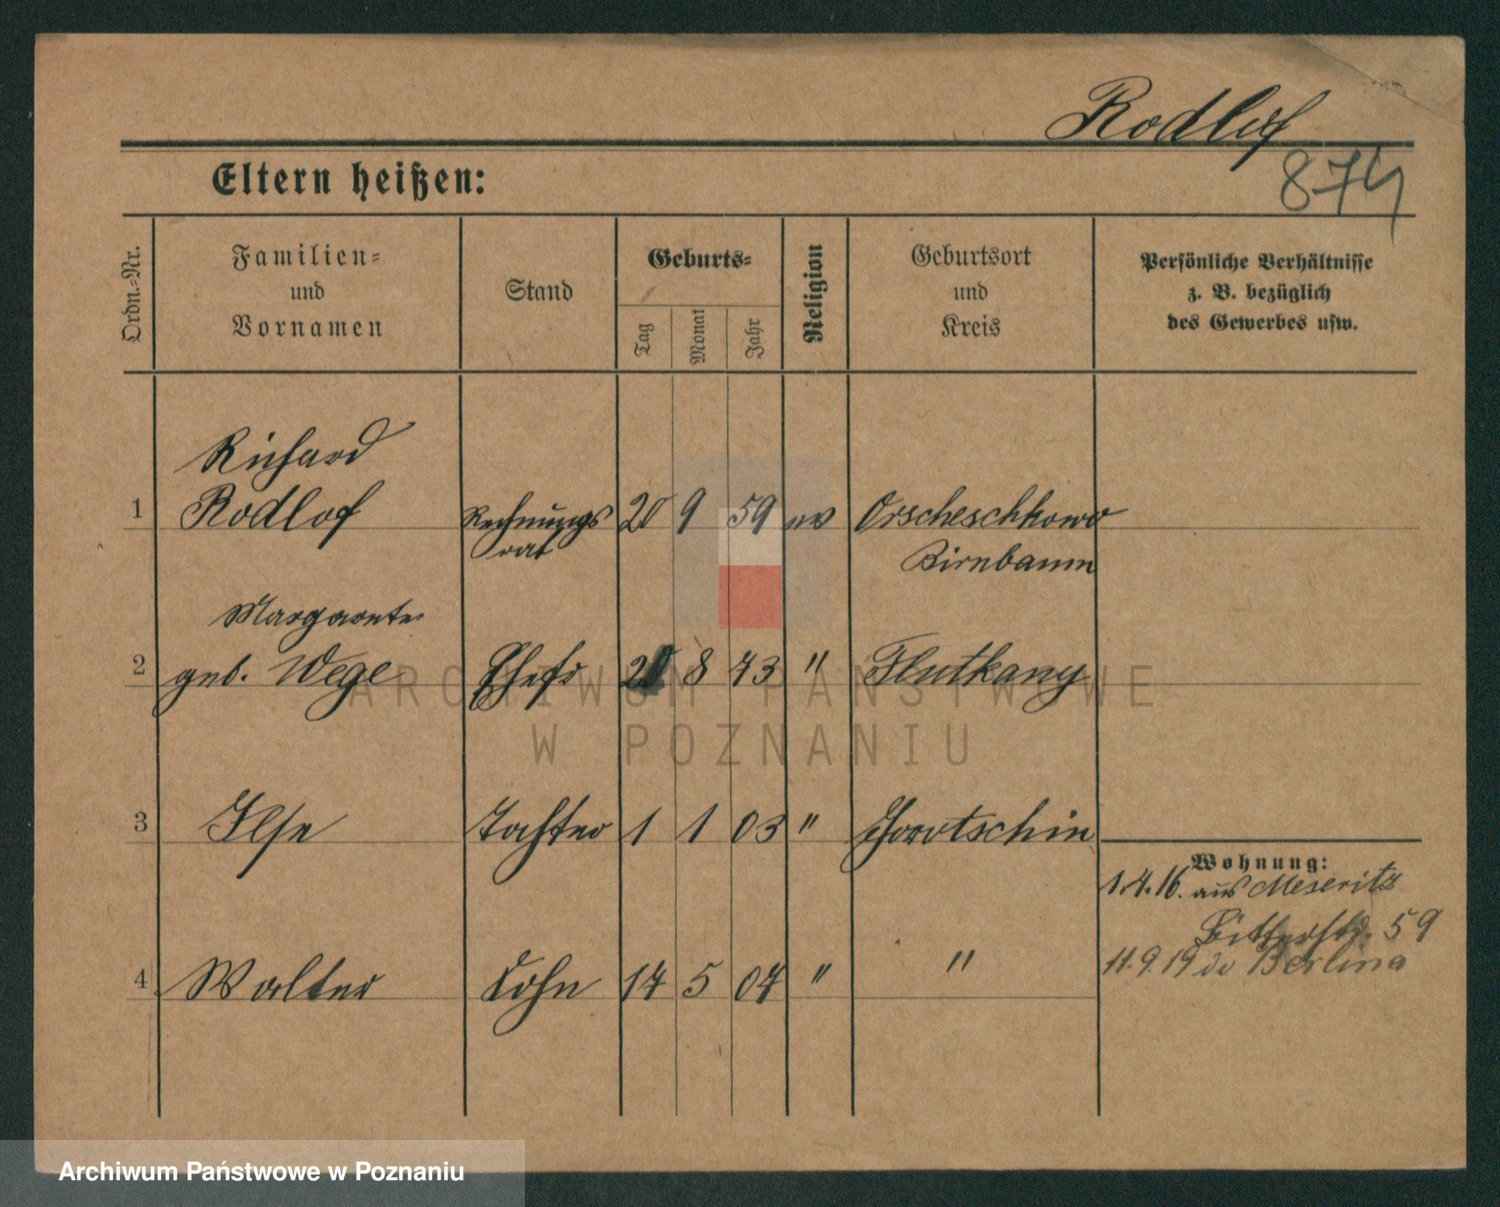 Rodlof
874
Eltern heißen:
Ordn.-Nr.
Familien-
und
Vornamen
Stand
Geburts-
Tag
Monat
Jahr
Religion
Geburtsort
und
Kreis
Persönliche Verhältnisse
z. B. bezüglich
des Gewerbes usw.
Richard
1 Rodlof Rechnungs 20 9 59 ev Orscheschkowo
rat Birnbaum
Margarete
2 geb. Wege Ehefr 8 73 "
3 Ilse Tochter 1 1 03 "
Wohnung:
1.4.16. aus Meseritz
59
4 Walter Sohn 14 5 04 " "
11.9.19 do Berlina
ARCHIWUM PAŃSTWOWE
W POZNANIU
Archiwum Państwowe w Poznaniu